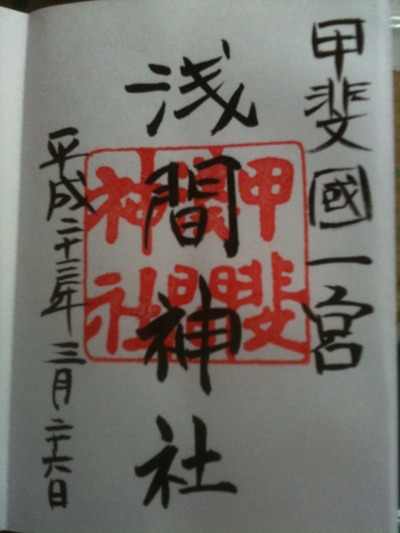 甲斐國一宮
浅間神社
平成二十三年三月二十六日
甲斐
浅間
神社